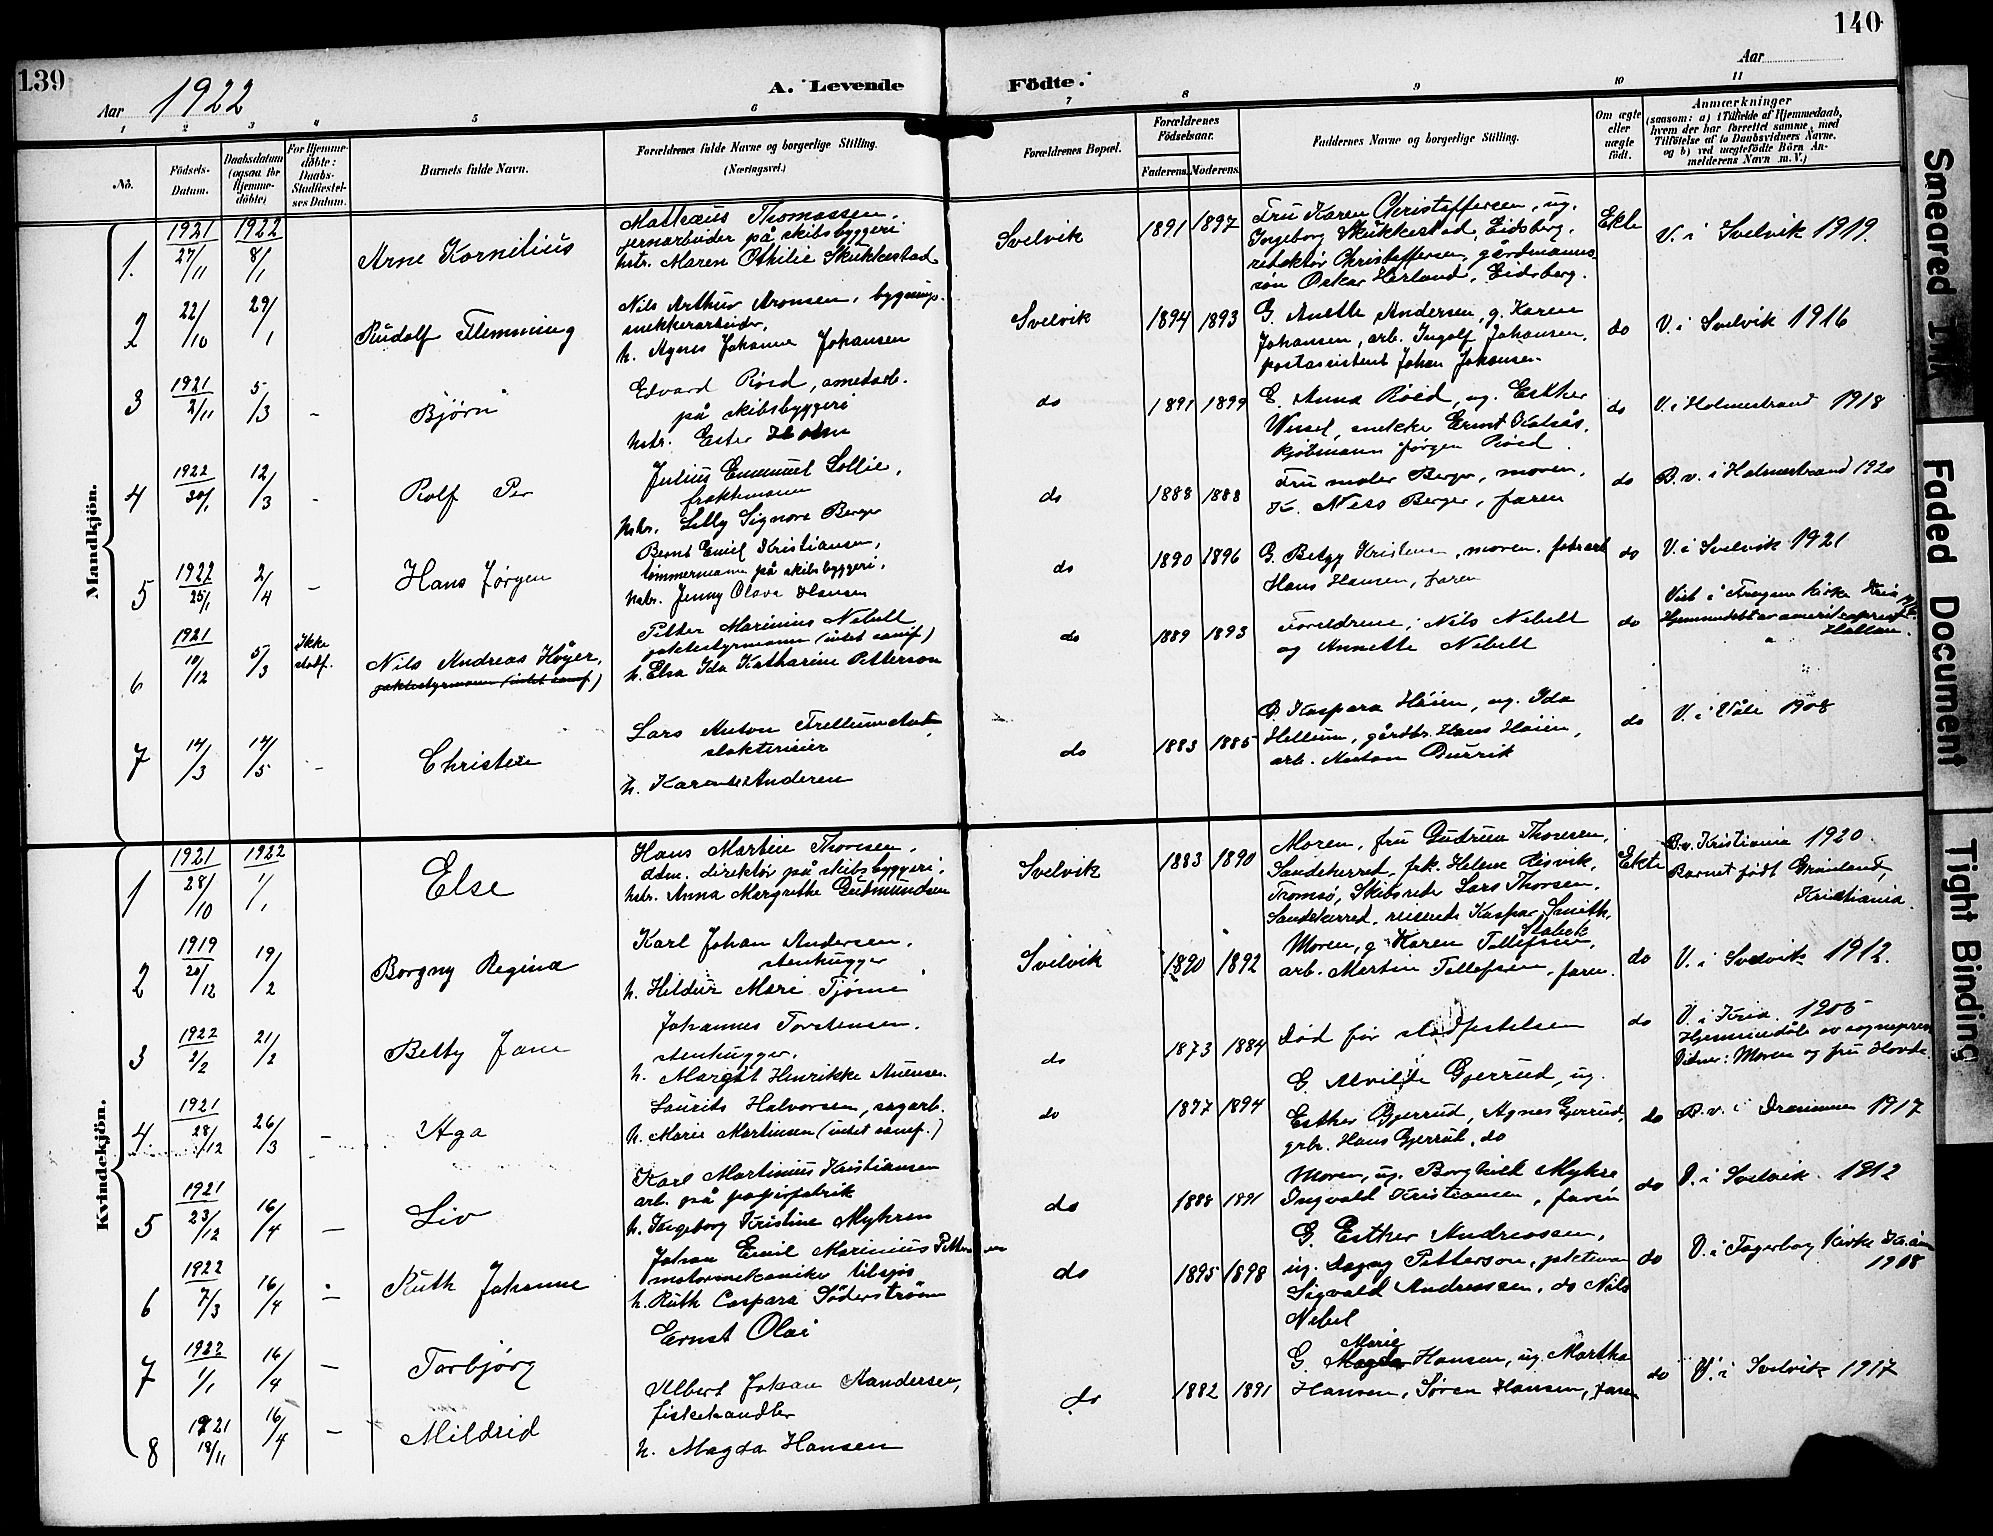 139
140
Aar 1922
A. Levende Födte.
Aar
1 2 3 4 5 6 7 8 9 10 11
No.
Födsels-Datum.
Daabsdatum (ogsaa for Hjemme-döbte)
For Hjemme-döbte: Daabs-Stadfæstel-ses Datum.
Barnets fulde Navn.
Forældrenes fulde Navne og borgerlige Stilling. (Næringsvei.)
Forældrenes Bopæl.
Forældrenes Födselsaar.
Faderens. Moderens.
Faddernes Navne og borgerlige Stilling.
Om ægte eller uægte födt.
Anmærkninger
(saasom: a) i Tilfælde af Hjemmedaab,
hvem der har forrettet samme, med
Tilföielse af to Daabsvidners Navne,
og b) ved uægtefödte Börn An-
melderens Navn m. V.)
Mandkjön.
1. 1921 27/11 1922 8/1 Arne Kornelius
Mathæus Thomassen,
jernarbeider på skibsbyggeri
hstr. Maren Othilie Skukkestad
Svelvik 1891 1897
Fru Karen Christoffersen, ug.
Ingeborg Skukkestad, Eidsberg,
redaktør Christoffersen, gårdmanns
søn Oskar Herland, Eidsberg.
Ekte V. i Svelvik 1919.
2 22/10 29/1 Rudolf Flemming
Nils Arthur Aronsen, bygnings-
snekkerarbeider,
h. Agnes Johanne Johansen
Svelvik 1894 1893
G. Anette Andersen, g. Karen
Johansen, arb. Ingolf Johansen,
postassistent Johan Johansen
do V. i Svelvik 1916
3 1921 2/11 5/3 - Bjørn
Edvard Röed,
på skibsbyggeri
hstr. Ester Holm
do 1891 1899
G. Anna Röed, ug. Esther
Wessel, snekker Ernst
kjøbmann Jørgen Röed
do V. i Holmestrand 1918
4 1922 20/1 12/3 - Rolf Per
Julius Emanuel Sollie,
fraktemann
hstr. Lilly Signora Berger
do 1888 1888
Fru maler Berger, moren,
K. Niss Berger, faren
do B. v. i Holmestrand 1920
5 1922 25/1 2/4 - Hans Jørgen
Bernt Emil Kristiansen,
tømmermann på skibsbyggeri,
hstr. Jenny Olava Hansen
do 1890 1896
G. Betzy Kristensen, moren, fabr.arb
Hans Hansen, faren
do V. i Svelvik 1921
6 1921 10/12 5/3 Ikke stadf. Nils Andreas Höyer,
jaktestyrmann (intet samf.)
Petter Marinius Nebell
jaktestyrmann (intet samf.)
h. Elsa Ida Katharine Petterson
do 1889 1893
Foreldrene, Nils Nebell
og Annette Nebell
do Viet i Frogner kirke
Hjemmedøbt av
7 14/3 14/5 - Christen
Lars Anton
slakterieier
h. Karen Andersen
do 1883 1885
G. Kaspara Høien, ug. Ida
Hellum, gårdbr. Hans Høien,
arb. Anton Durrik
do V. i Våle 1908
Kvindekjön.
1 1921 28/10 1922 1/1 Else
Hans Martin Thoresen,
adm. direktør på skibsbyggeri,
hstr. Anna Margrethe Gudmundsen
Svelvik 1883 1890
Moren, fru Gudrun Thoresen,
Sandeherred, frk. Helene Risvik,
Tromsø, Skibsreder Lars Thorsen,
Sandeherred, reisende Kaspar Smith,
Stabekk
Ekte B. v. Kristiania 1920
Barnet født Grønland,
Kristiania.
2 1919 20/12 19/2 Borgny Regine
Karl Johan Andersen,
stenhugger
h. Hildur Marie Tjøme
Svelvik 1890 1892
Moren, g. Karen Tollefsen,
arb. Martin Tollefsen, faren.
do V. i Svelvik 1912.
3 1922 2/2 21/2 Betty Jane
Johannes Torstensen,
stenhugger,
h. Margit Henrikke
do 1873 1884
Død før stadfestelsen
do V. i Kria. 1905
Hjemmedøbt av sognepres
Vidner: Moren og fru Hovde
4. 1921 28/12 26/3 - Aga
Laurits Halvorsen, sagarb.
h. Marie Martinsen (intet samf.)
do 1877 1894
G. Alvilde Gjerrud, ug.
Esther Gjerrud, Agnes Gjerrud,
grbr. Hans Gjerrud, do
do B. v. i Drammen 1917
5 1921 23/12 16/4 - Liv
Karl Martinius Kristiansen
arb. på papirfabrik
h. Ingeborg Kristine Myhren
do 1888 1891
Moren, ug. Borghild Myhre
Ingvald Kristiansen, faren
do V. i Svelvik 1912
6 1922 7/3 16/4 - Ruth Johanne
Johan Emil Marinius Pettersen
motormekaniker tilsjøs
h. Ruth Caspara Söderström
do 1895 1898
G. Esther Andreassen,
ug. Dagny Petterson,
Sigvald Andreassen, do Nils
Nebel
do V. i Fagerborg kirke Kr.ania
1918
7 1922 1/1 16/4 - Torbjørg
Ernst Olai
8 1921 18/11 16/4 - Mildrid
Albert Johan Aandersen,
fiskehandler
h. Magda Hansen
do 1882 1891
Marie
G. Magda Hansen, ug. Martha
Hansen, Søren Hansen, faren
do V. i Svelvik 1917
Smeared Ink
Faded Document
Tight Binding